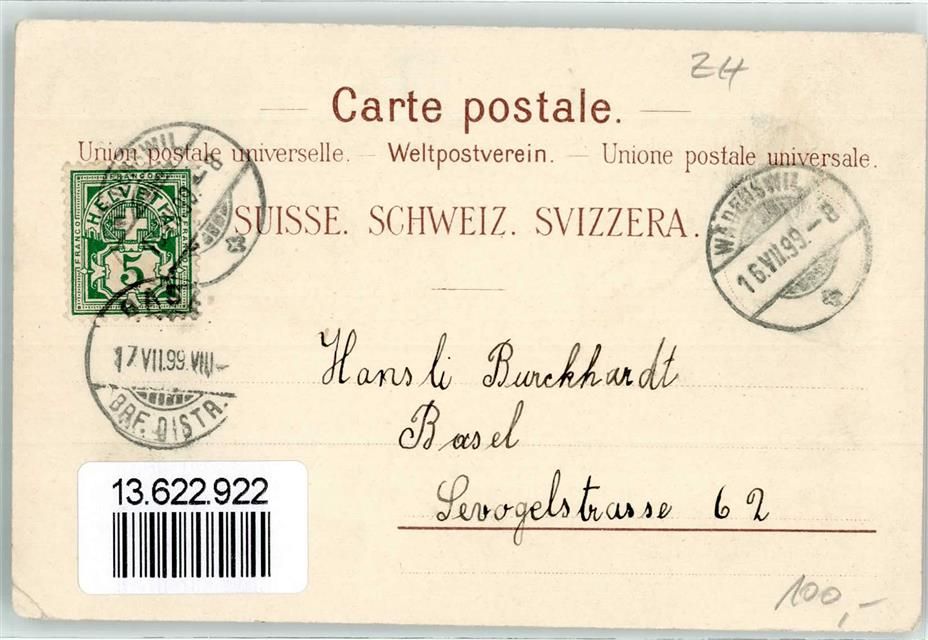 ZH
Carte postale.
Union postale universelle. — Weltpostverein. — Unione postale universale.
SUISSE. SCHWEIZ. SVIZZERA.
FRANCO
HELVETIA
FRANCO
FRANCO
5
WÄDENSWIL
16.VII.99.–8
BAS
17.VII.99.VIII–
BRF. DISTR.
Hansli Burckhardt
Basel
Sevogelstrasse 62
13.622.922
100,-